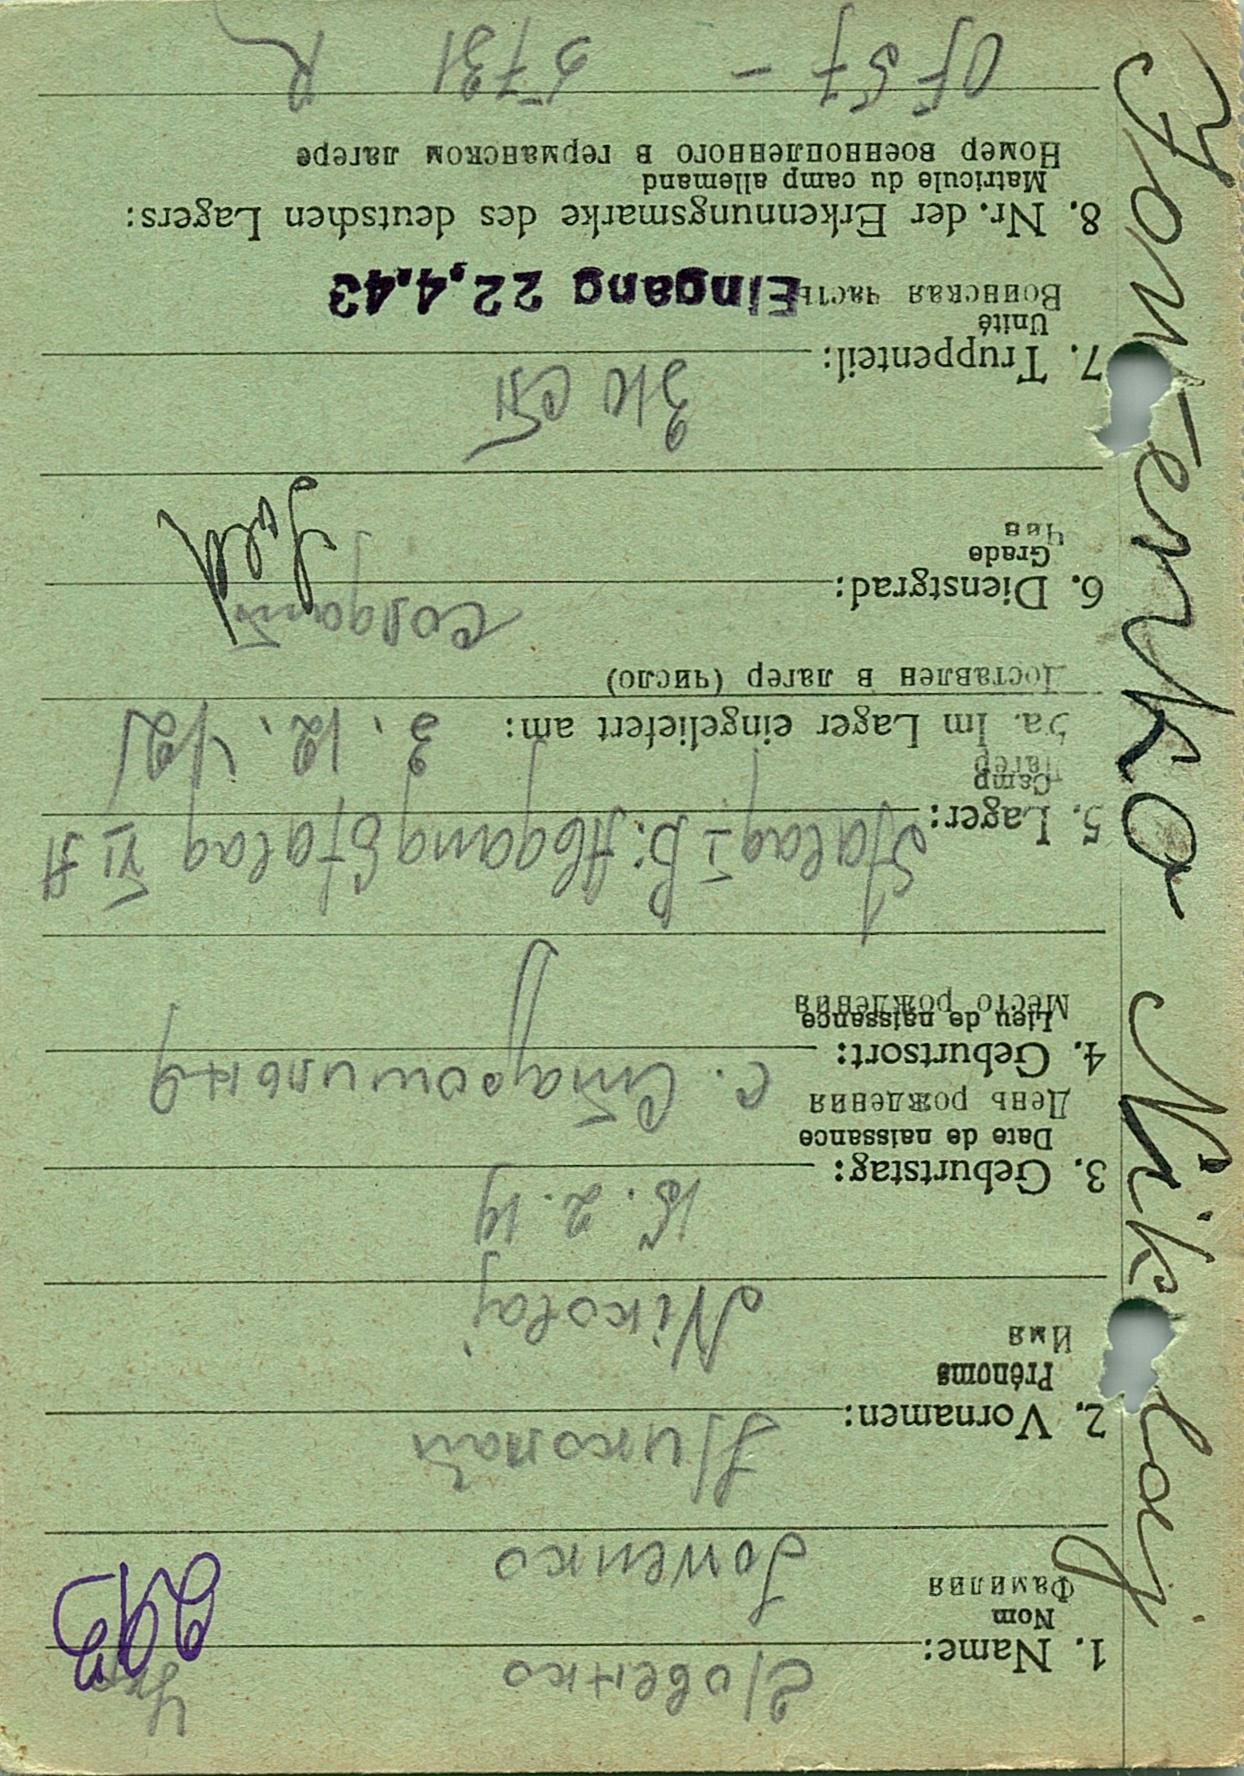 1. Name: Иовенко Укр
Nom
Фамилия
Jowenko
2. Vornamen: Николай
Prénoms
Имя
Nikolaj
3. Geburtstag: 15. 2. 19
Date de naissance
День рождения
4. Geburtsort: с.
Lieu de naissance
Место рождения
5. Lager: Stalag I B: Abgang Stalag VI A
Camp
Лагерь
5a. Im Lager eingeliefert am: 3. 12. 42
Доставлен в лагер (число)
6. Dienstgrad: солдат Sold
Grade
Чин
310 СП
7. Truppenteil:
Unité
Воинская часть Eingang 22.4.43
8. Nr. der Erkennungsmarke des deutschen Lagers:
Matricule du camp allemand
Номер военнопленного в германском лагере
Of 57 - 5731 R
Jowenko Nikolaj